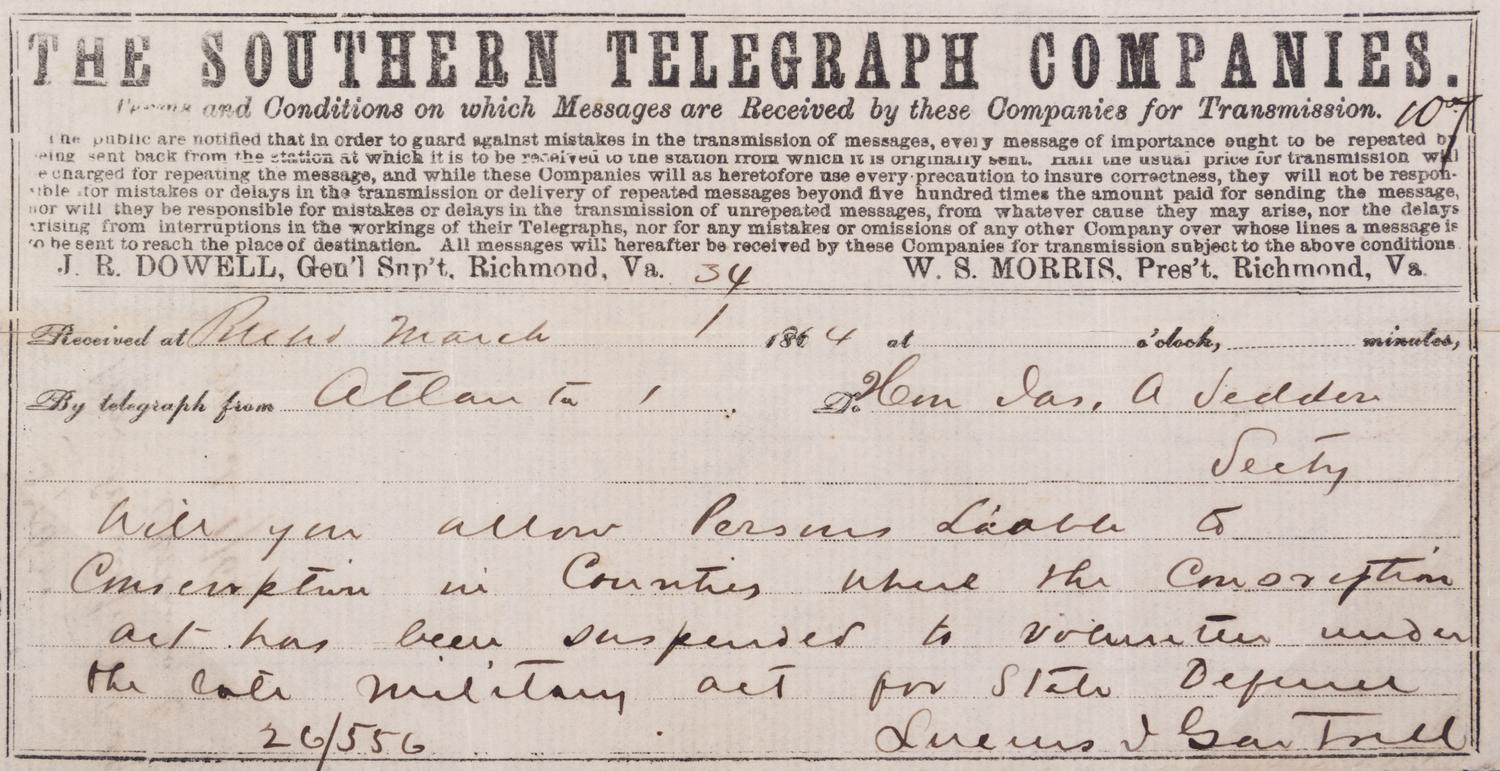 THE SOUTHERN TELEGRAPH COMPANIES.
Terms and Conditions on which Messages are Received by these Companies for Transmission. 107
The public are notified that in order to guard against mistakes in the transmission of messages, every message of importance ought to be repeated by
being sent back from the station at which it is to be received to the station from which it is originally sent. Half the usual price for transmission will
be charged for repeating the message, and while these Companies will as heretofore use every precaution to insure correctness, they will not be respon-
sible for mistakes or delays in the transmission or delivery of repeated messages beyond five hundred times the amount paid for sending the message,
nor will they be responsible for mistakes or delays in the transmission of unrepeated messages, from whatever cause they may arise, nor the delays
arising from interruptions in the workings of their Telegraphs, nor for any mistakes or omissions of any other Company over whose lines a message is
to be sent to reach the place of destination. All messages will hereafter be received by these Companies for transmission subject to the above conditions.
J. R. DOWELL, Gen'l Sup't, Richmond, Va. 34 W. S. MORRIS, Pres't, Richmond, Va.
Received at Richd March 1 1864 at o'clock, minutes,
By telegraph from Atlanta 1 Hon Jas. A Seddon
Secty
Will you allow Persons Liable to
Conscription in Counties where the Conscription
act has been suspended to volunteer under
the late military act for State Defense
26/556 Lucius J Gartrell